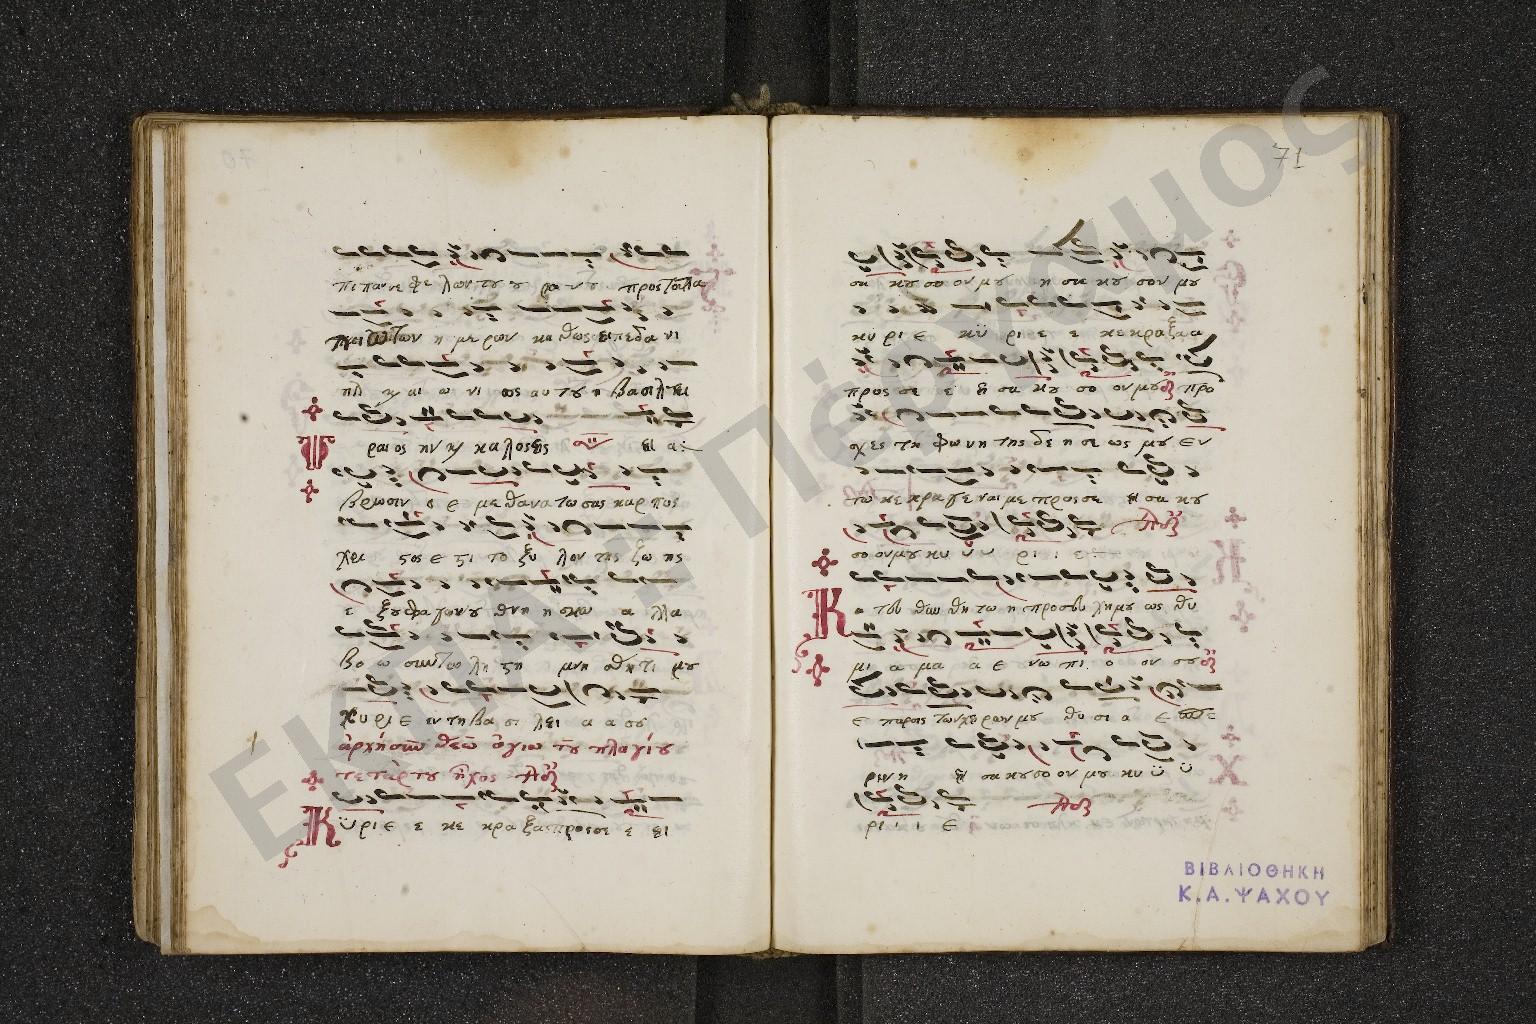 70
πι πα νε φε λων του ου ρα νου προς τον πα
των η με ρων κα θως ει πε δα νι
ηλ κ αι ω νι ος αυ του η βα σι λει
ραι ος ην κ κα λος εις ει α :
βρω σιν ο ε με θα να τω σας καρ πος
χρι στος ε στι το ξυ λον της ζω ης
ε ξ ου φα γων ου θνη η σκω α λλα
βο ω συν τω λη στη μνη σθη τι μου
κυ ρι ε εν τη βα σι λει α α σου
ἀρχὴ σὺν θεῶ ἁγίω τοῦ πλαγίου
τετάρτου ἦχος πλδ
Κ ϋ ρι ε ε κε κρα ξα προς σε ε ει
71
σα κου σο ον μου η σα κου σον μου
κυ ρι ε κϋ ρι ε ε κε κρα ξα α
προς σε ε ει σα κου σο ον μου προ
σχες τη φω νη της δε η σε ως μου εν
τω κε κρα γε ναι με προς σε ει σα κου
σο ον μου κυ ϋ ϋ ρι ι ε
Κ α τευ θυν θη τω η προσευ χη μου ως θυ
μι α μα α ε νω πι ο ον σου
ε παρσις των χει ρων μου θυ σι α ε σπε
ρι νη ει σα κου σο ον μου κυ ϋ ϋ
ρι ι ι ε
ΒΙΒΛΙΟΘΗΚΗ
Κ.Α.ΨΑΧΟΥ
ΕΚΠΑ - Πέργαμος